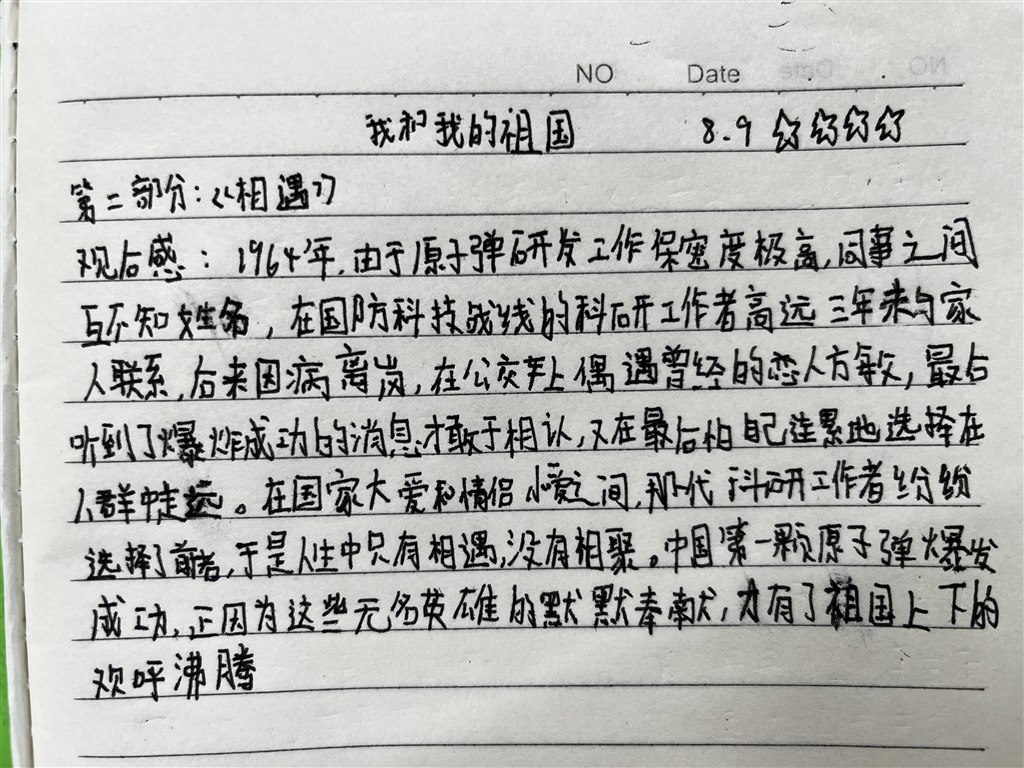 NO Date
我和我的祖国 8.9 ☆☆☆☆
第二部分:《相遇》
观后感:1964年,由于原子弹研发工作保密度极高,同事之间
互不知姓名,在国防科技战线的科研工作者高远三年未与家
人联系,后来因病离岗,在公交车上偶遇曾经的恋人方敏,最后
听到了爆炸成功的消息才敢于相认,又在最后怕自己连累地选择在
人群中走远。在国家大爱和情侣小爱之间,那代科研工作者纷纷
选择了前者,于是人生中只有相遇,没有相聚。中国第一颗原子弹爆发
成功,正因为这些无名英雄的默默奉献,才有了祖国上下的
欢呼沸腾